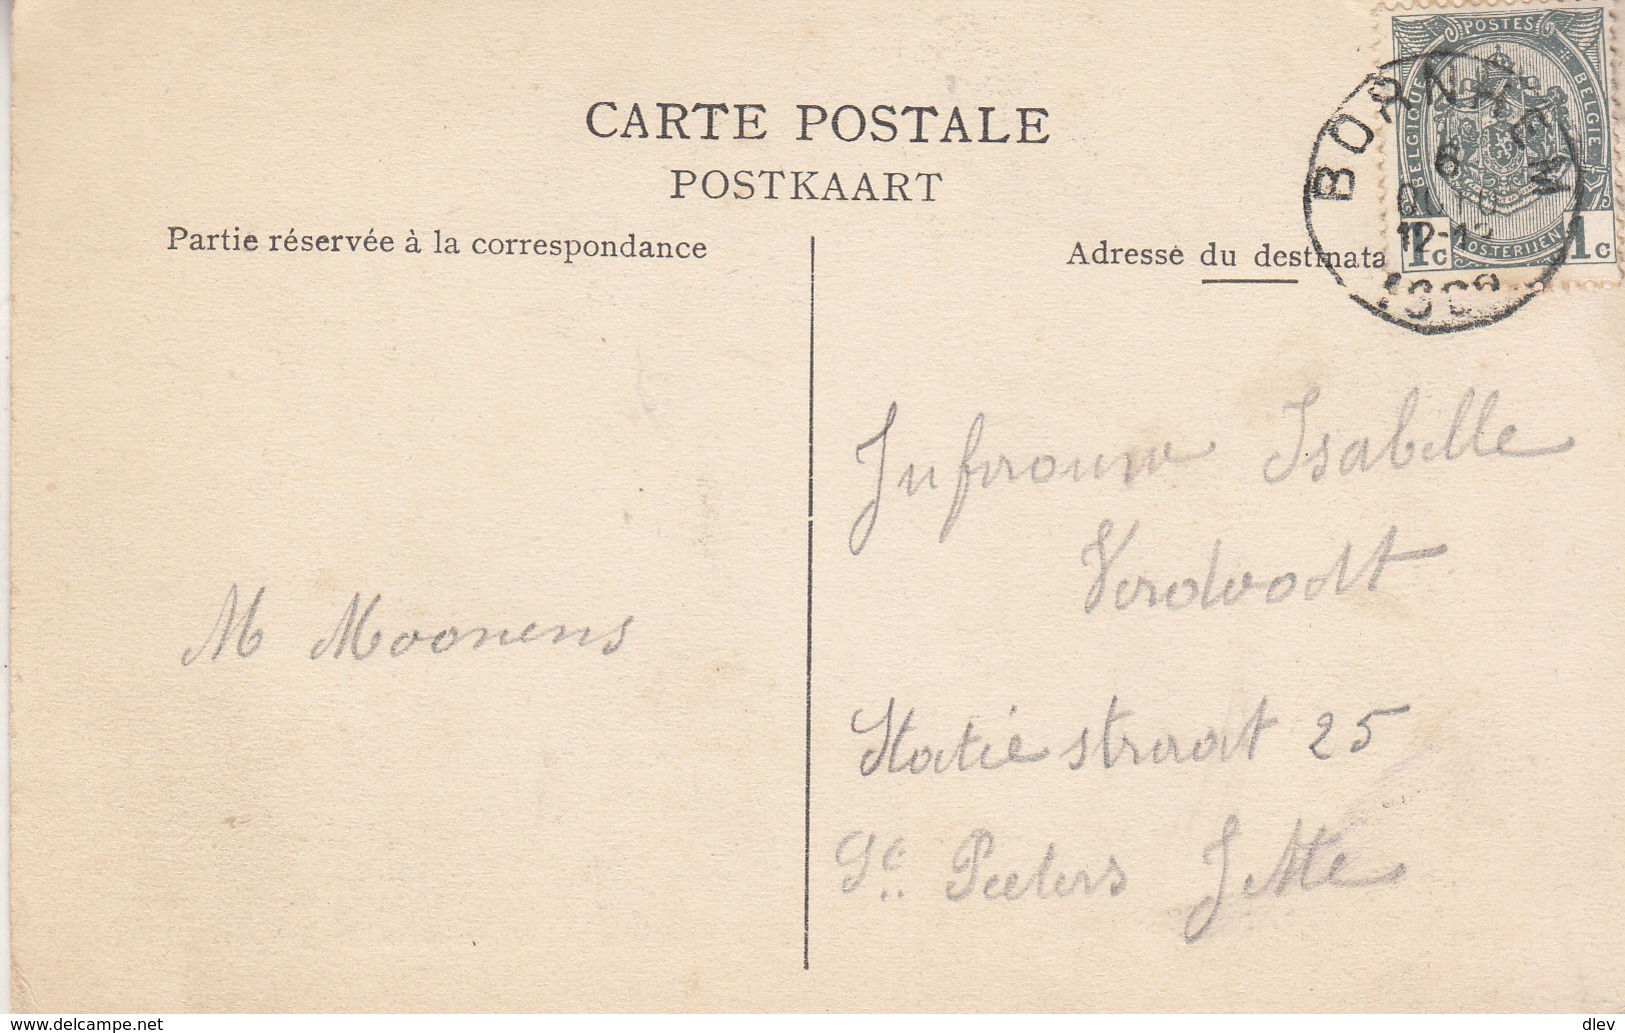 CARTE POSTALE
POSTKAART
Partie réservée à la correspondance
Adresse du destinata
POSTES
BELGIQUE
BELGIE
POSTERIJEN
1c 1c
BORNHEM
6
12-1
M Moonens
Jufrouw Isabelle
Verdoodt
Statie straat 25
St. Peeters Jette
www.delcampe.net
dlev